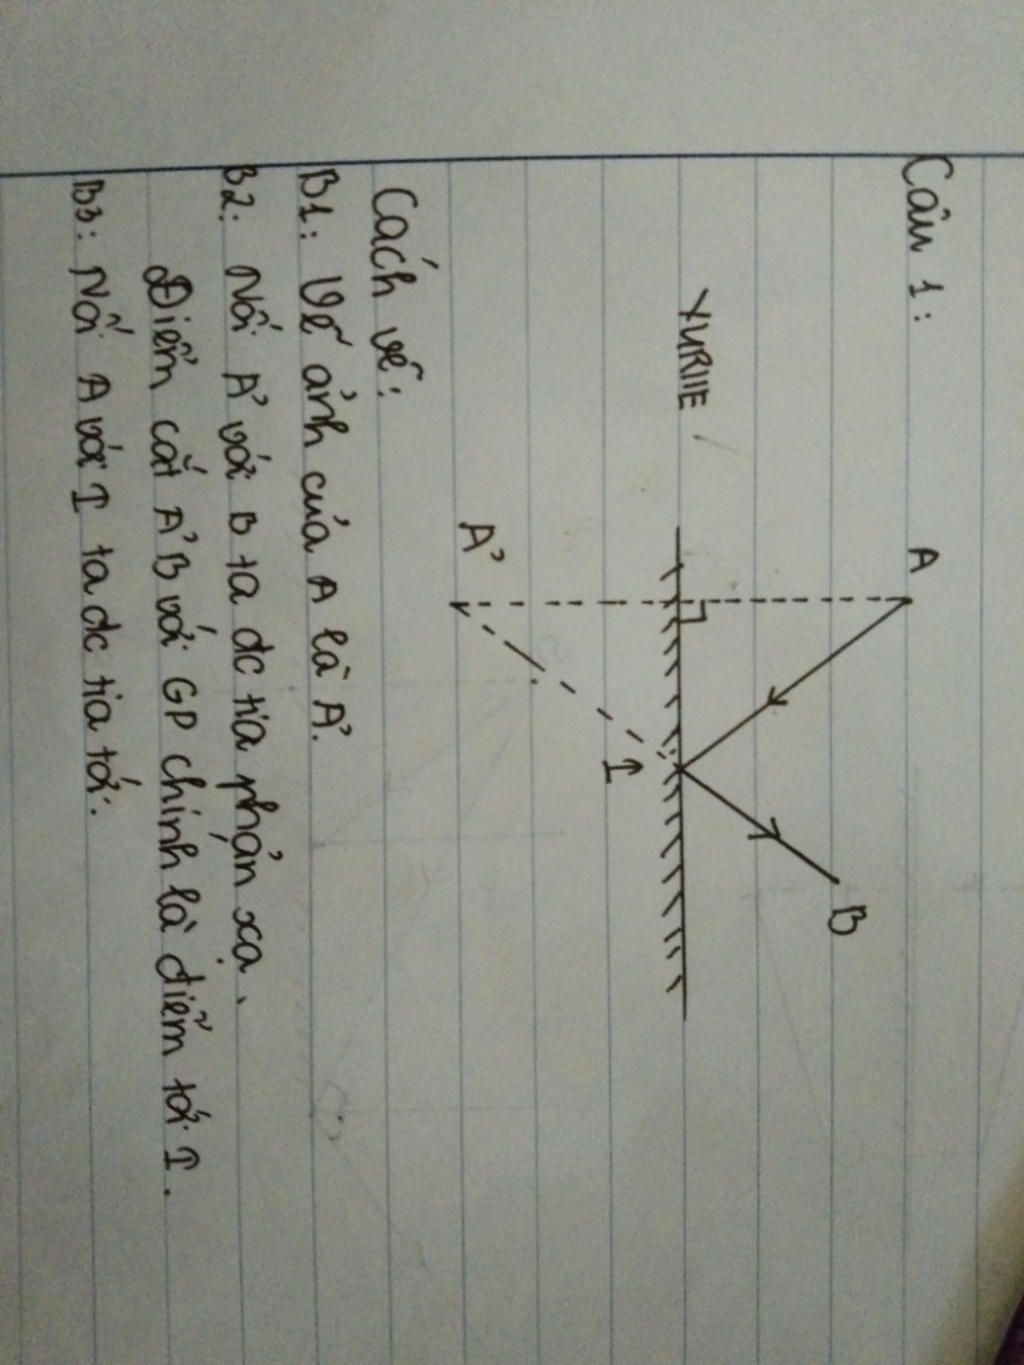 Câu 1:
A
B
YURIIE
I
A'
Cách vẽ:
B1: Vẽ ảnh của A là A'.
B2: Nối A' với B ta dc tia phản xạ.
Điểm cắt A'B với GP chính là điểm tới I.
B3: Nối A với I ta dc tia tới.